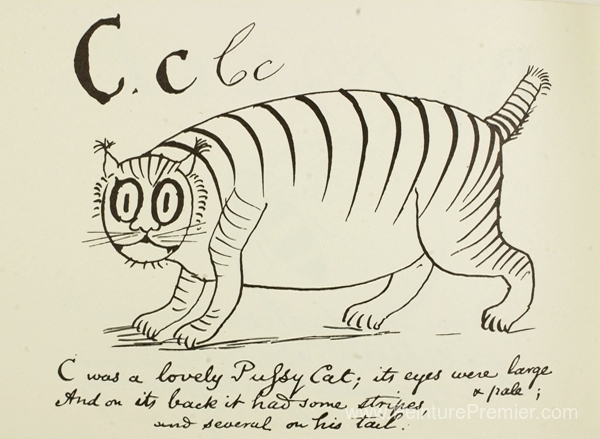 C. c C c
C was a lovely Pussy Cat; its eyes were large
& pale;
And on its back it had some stripes,
and several on his tail.
www.PeinturePremier.com